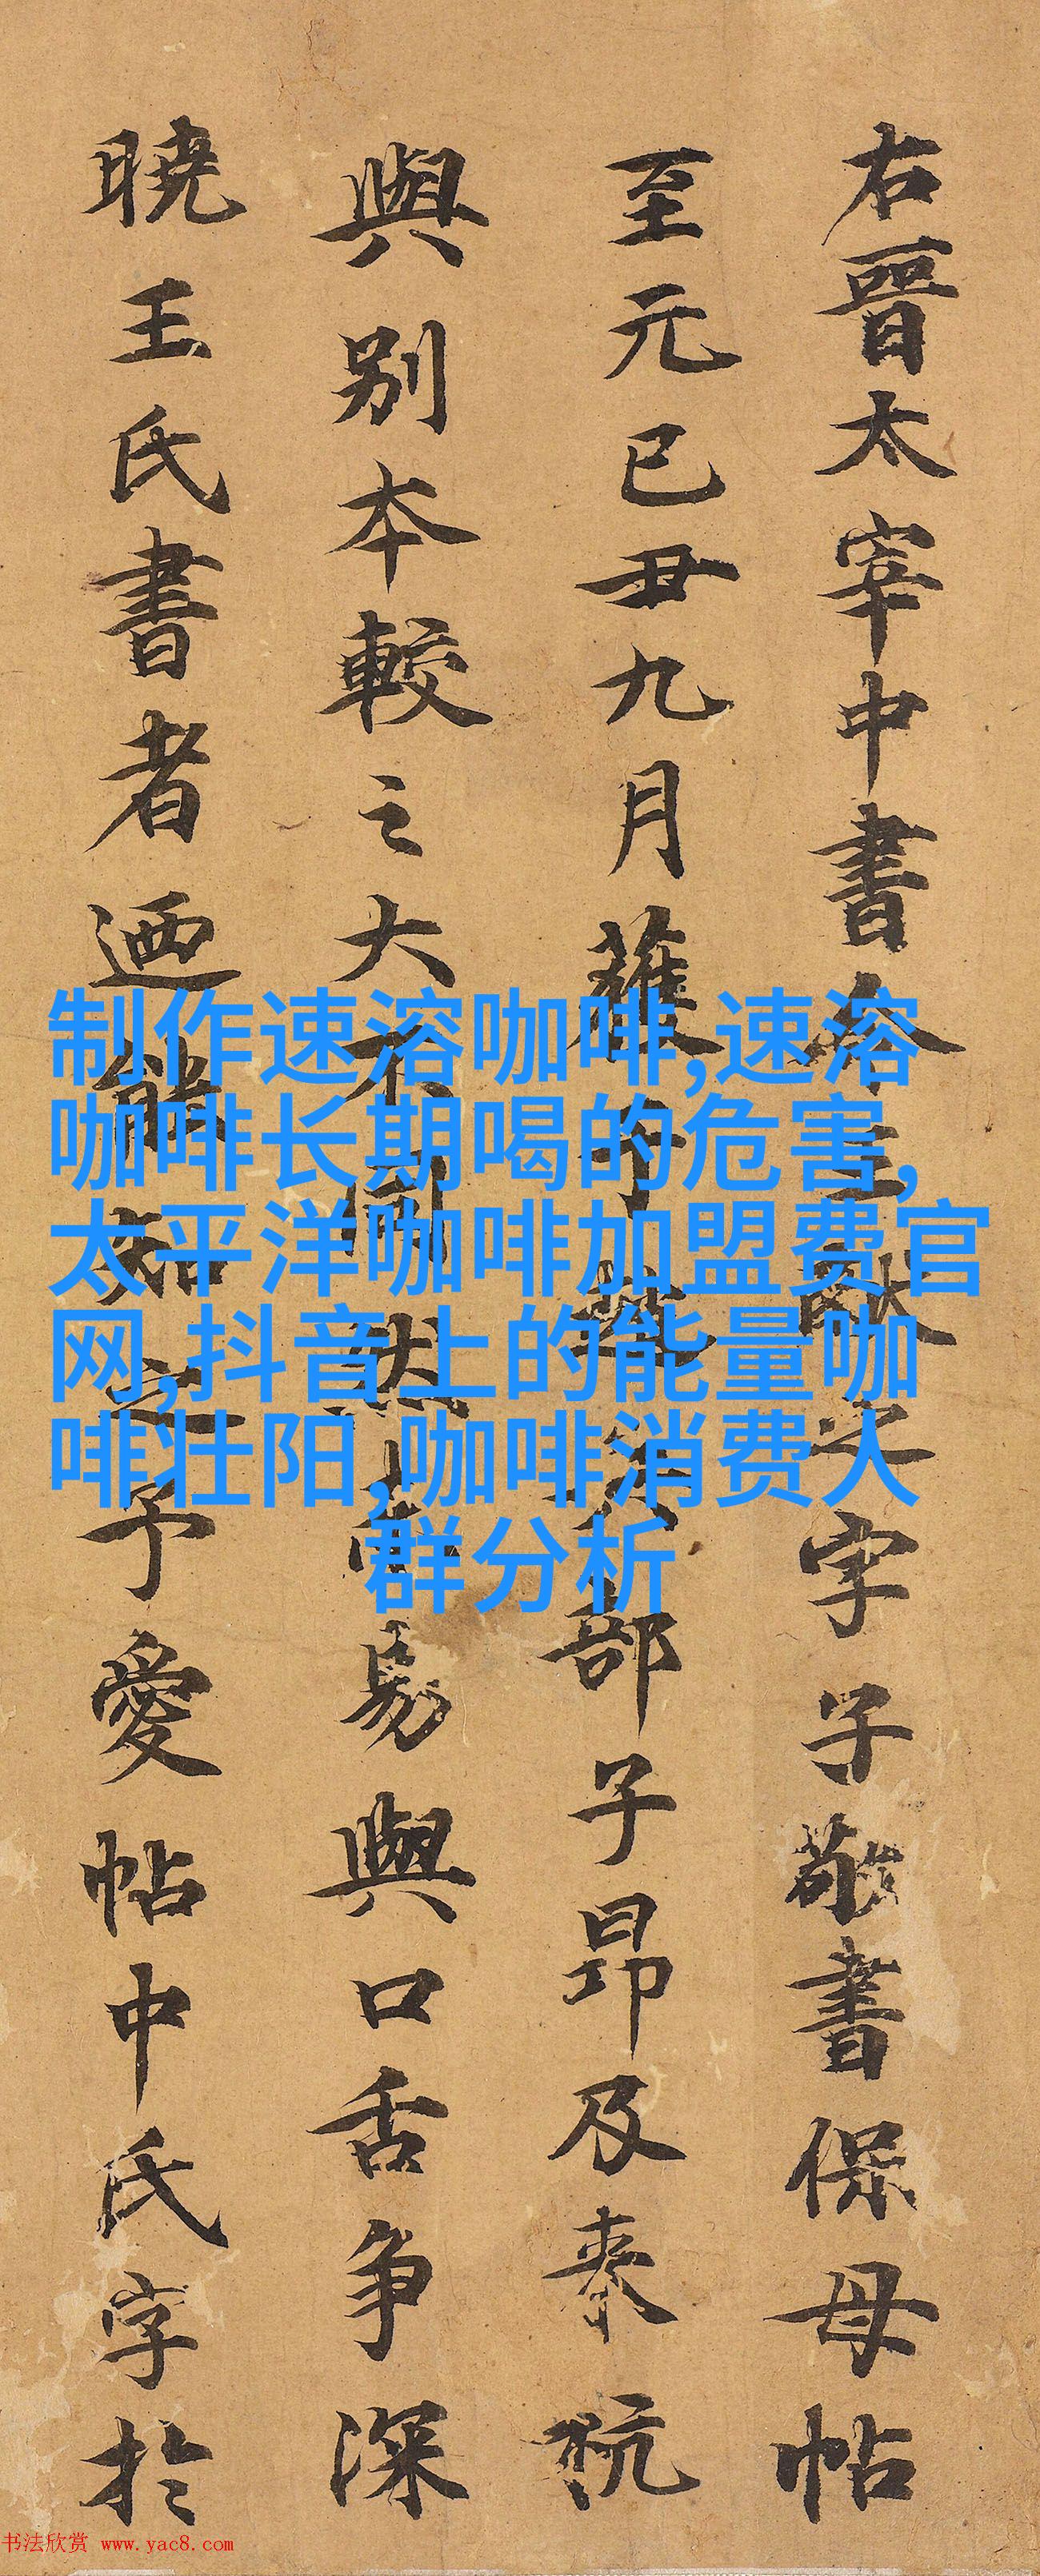 右晉太宰中書令王獻之字子敬書保母帖
至元己丑九月趙兵部子昂及
與別本較之大不同然未易與口舌爭深
曉王氏書者迺能知之予愛帖中氏字於
制作速溶咖啡,速溶
咖啡长期喝的危害,
太平洋咖啡加盟费官
网,抖音上的能量咖
啡壮阳,咖啡消费人
群分析
书法欣赏 www.yac8.com